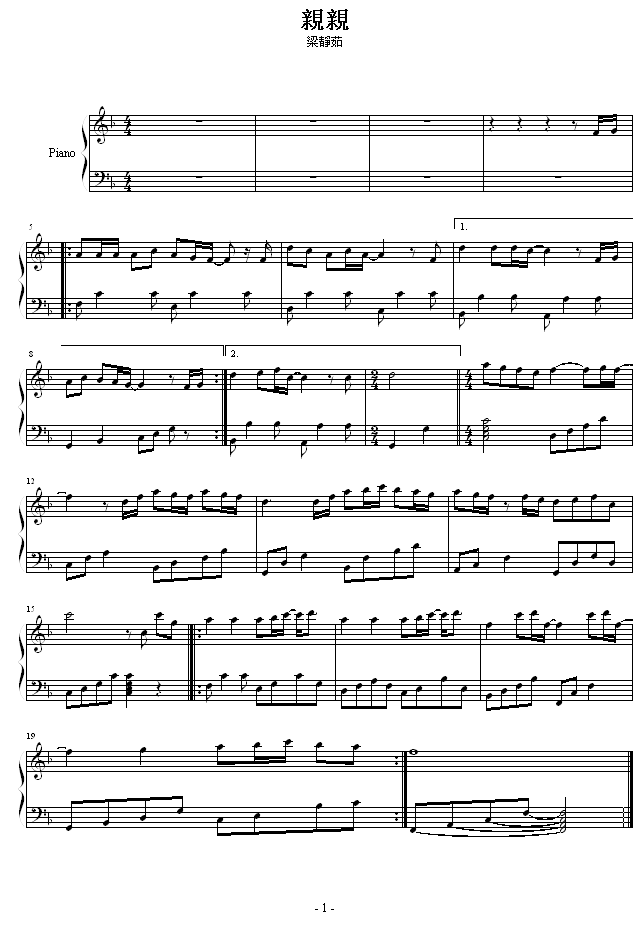 親親
梁靜茹
Piano
4
4
5
1.
8
2.
2
4
4
4
12
15
19
- 1 -